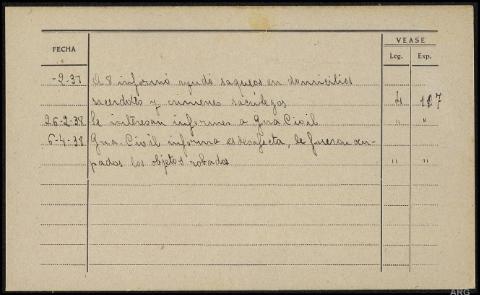 VEASE
FECHA Leg. Exp.
-2-37 A 8 informó ayudó saqueos en domicilios 4 127
sacerdotes y crimenes sacrílegos
26-2-38 Se interesan informes a Gna. Civil " "
6-4-38 Gna. Civil informa es desafecta, le fueron ocu- " "
pados los objetos robados
ARG